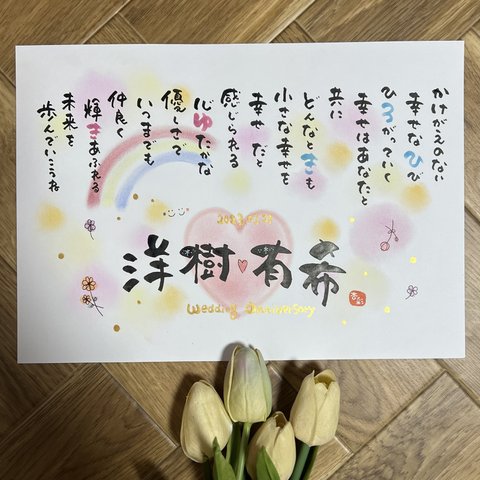 かけがえのない
幸せなひび
ひろがっていく
幸せはあなたと
共に
どんなときも
小さな幸せを
幸せ だと
感じられる
心ゆたかな
優しさで
いつまでも
仲良く
輝きあふれる
未来を
歩んでいこうね
洋樹♥有希
Wedding Anniversary